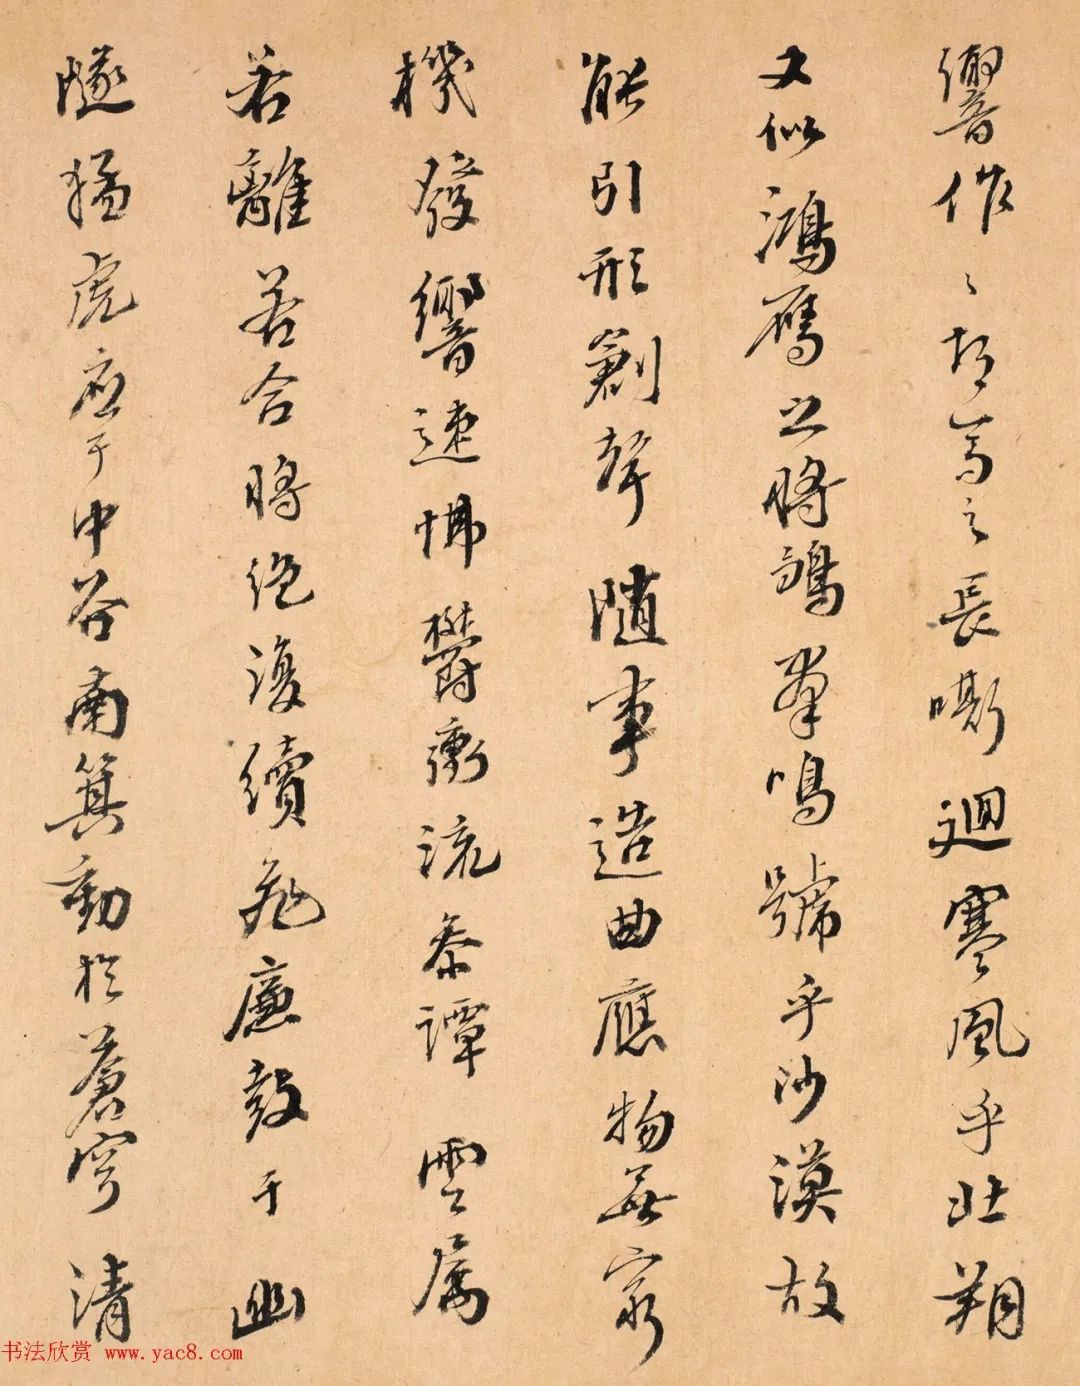 響作〻胡馬之長嘶迴寒風乎北朔
又似鴻鴈之將鶵羣鳴號乎沙漠故
能引形創聲隨事造曲應物無窮
機發響速怫欝衝流叅譚雲属
若離若合將絕復續飛廉鼓于幽
隧猛虎应于中谷南箕動於蒼穹清
书法欣赏 www.yac8.com